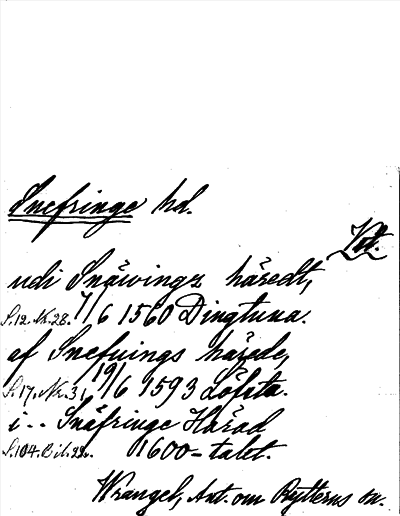 Snefringe hd.
Vst.
udi Snäwingz häredt,
S.12.Nr.28. 7/6 1560 Dingtuna.
af Snefuings härede,
S.17.Nr.31 19/6 1593 Löfsta.
i .. Snäfringe Härad
S.104.Bil.22. 1600-talet.
Wrangel, Ant. om Rytterns sn.